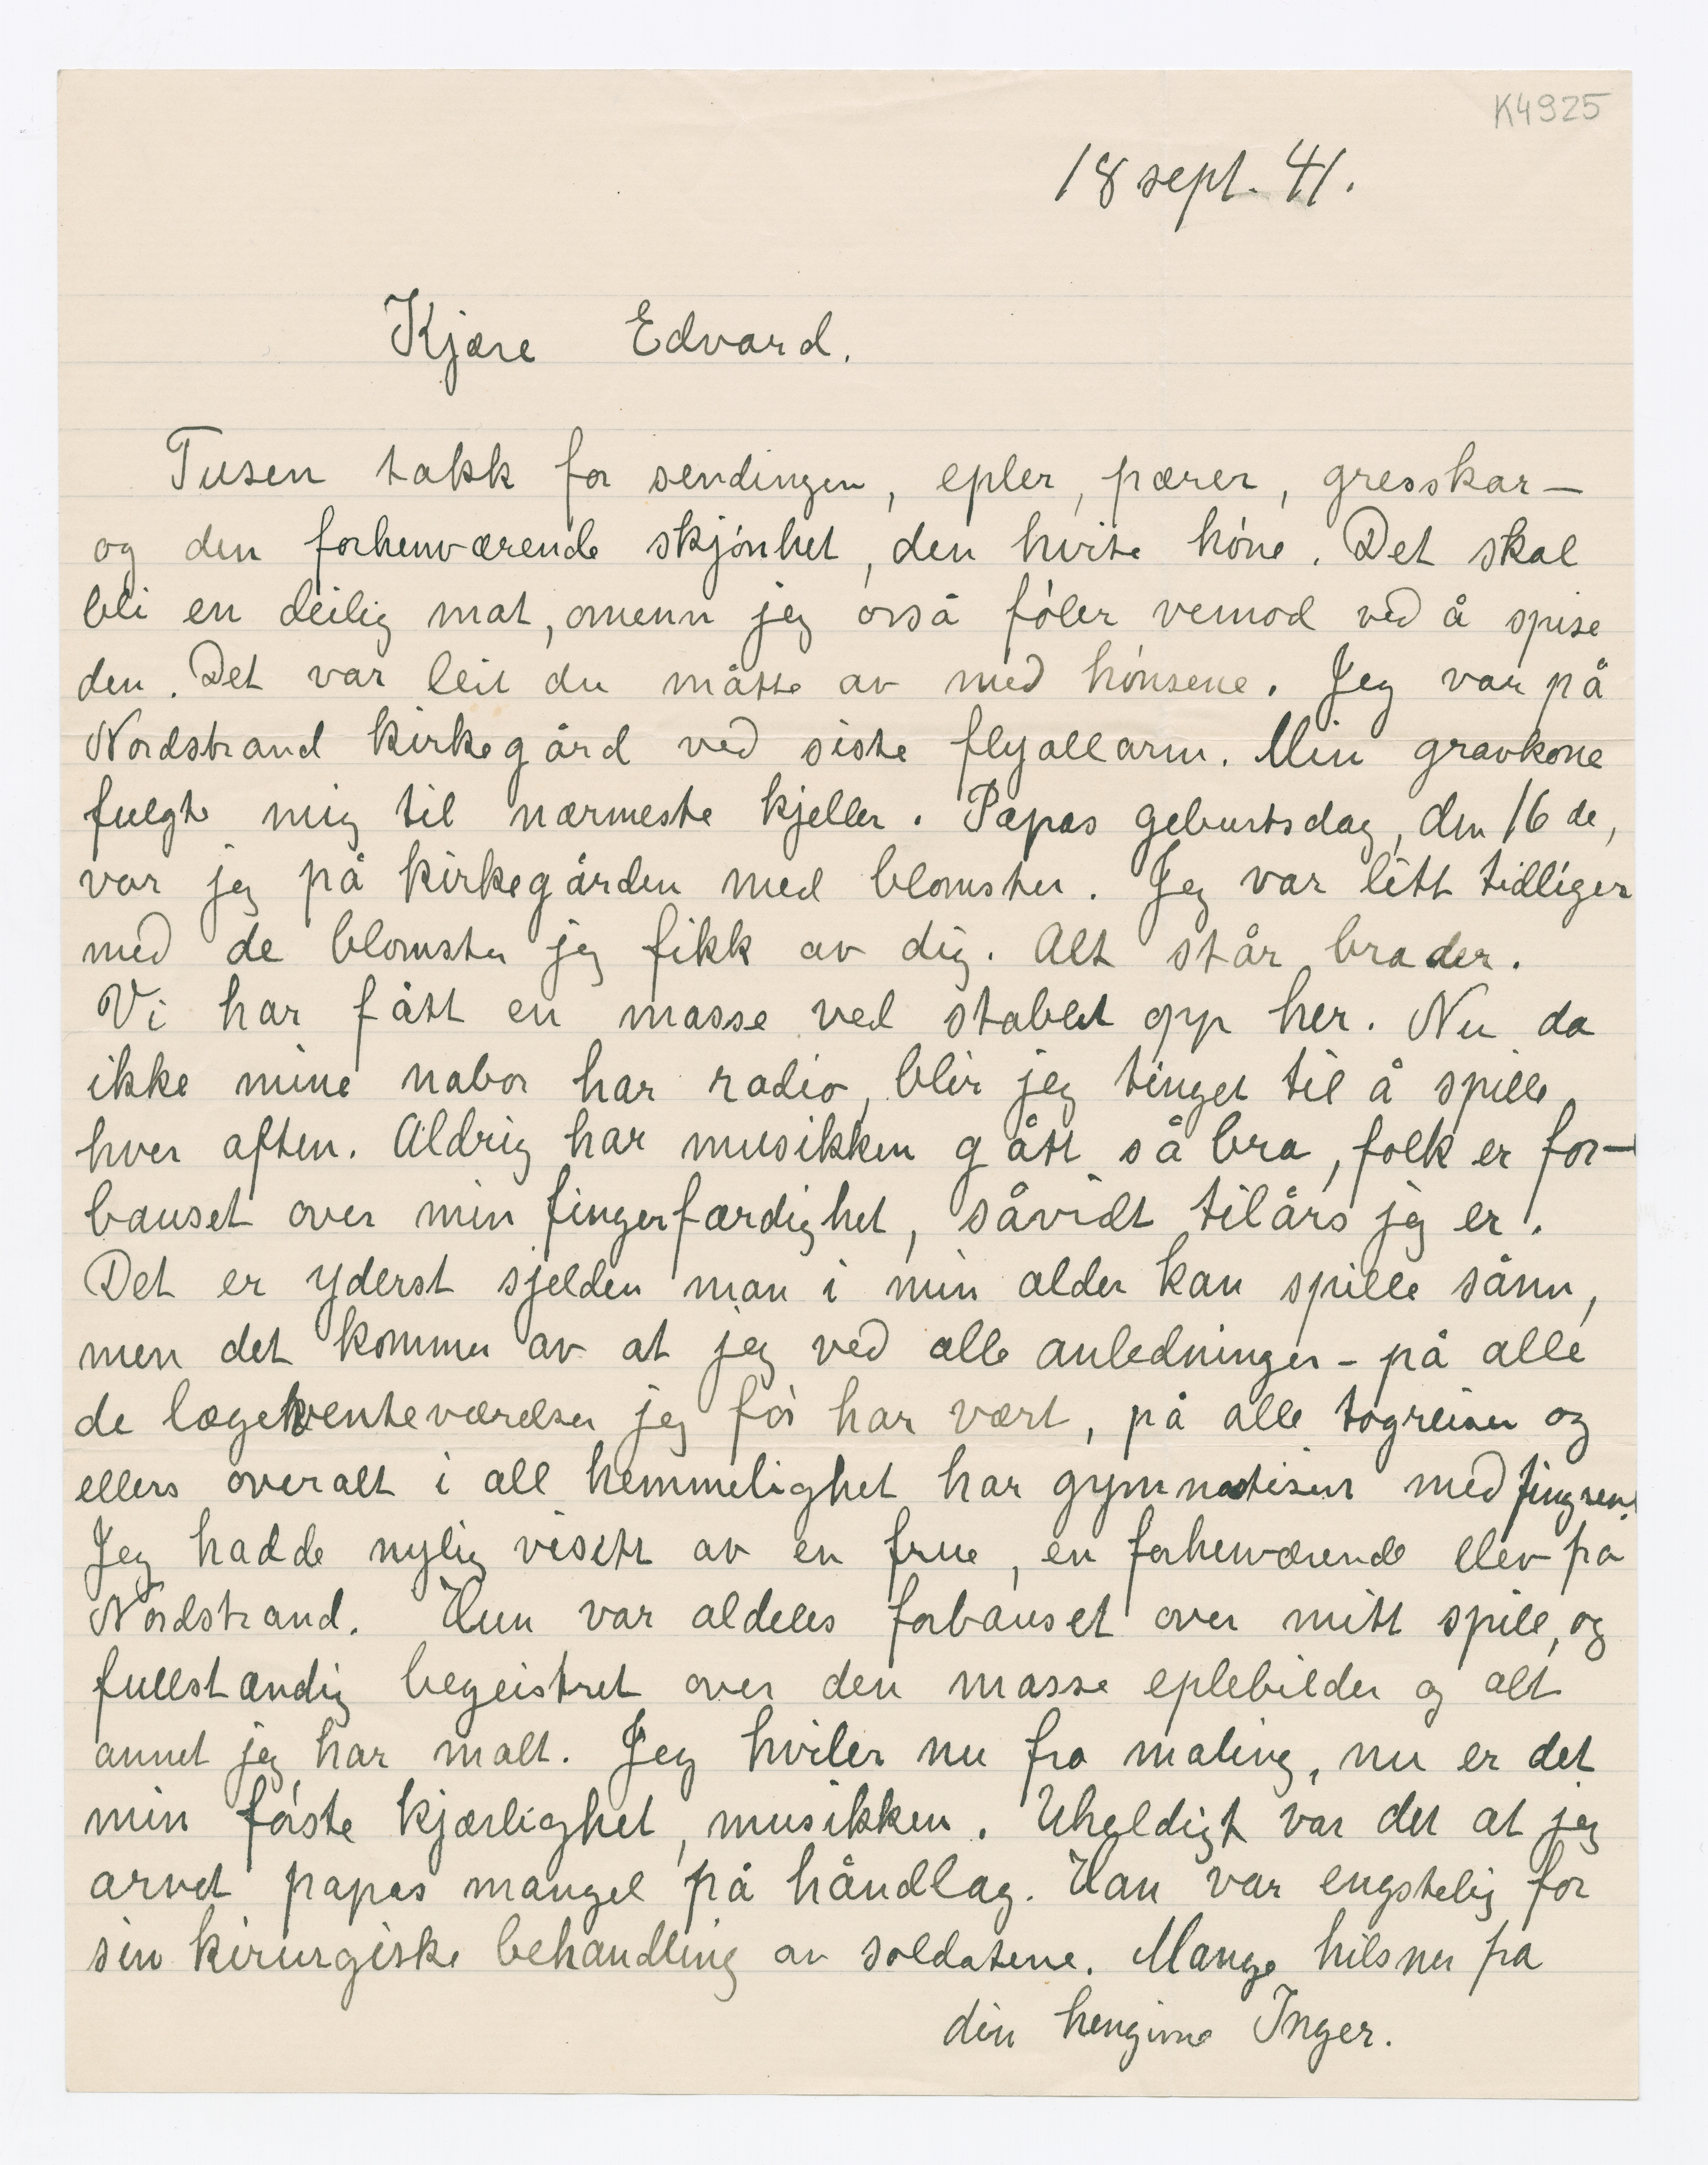 K4925
18 sept. 41.
Kjære Edvard.
Tusen takk for sendingen, epler, pærer, gresskar—
og den forhenværende skjónhet, den hvite hóne. Det skal
bli en deilig mat, omenn jeg osså fóler vemod ved å spise
den. Det var leit du måtte av med hónsene. Jeg var på
Nordstrand kirkegård ved siste flyallarm. Min gravkone
fulgte mig til nærmeste kjeller. Papas geburtsdag, den 16 de,
var jeg på kirkegården med blomster. Jeg var litt tidliger
med de blomster jeg fikk av dig. Alt står bra der.
Vi har fått en masse ved stablet opp her. Nu da
ikke mine nabor har radio, blir jeg tinget til å spille
hver aften. Aldrig har musikken gått så bra, folk er for—
bauset over min fingerfærdighet, såvidt tilårs jeg er.
Det er yderst sjelden man i min alder kan spille sånn,
men det kommer av at jeg ved alle anledninger – på alle
de lægeventeværelser jeg fór har vært, på alle togreiser og
ellers overalt i all hemmelighet har gymnastisert med fingren.
Jeg hadde nylig visitt av en frue, en forhenværende elev fra
Nordstrand. Hun var aldeles forbauset over mitt spill, og
fullstændig begeistret over den masse eplebilder og alt
annet jeg har malt. Jeg hviler nu fra maling, nu er det
min fórste kjærlighet, musikken. Uheldigt var det at jeg
arvet papas mangel på håndlag. Han var engstelig for
sin kirurgiske behandling av soldatene. Mange hilsner fra
din hengivne Inger.